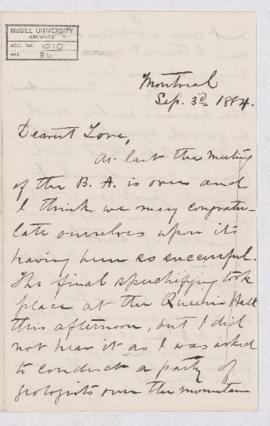 McGILL UNIVERSITY
ARCHIVES
ACC. NO. 1010
REF. 86
Montreal
Sep. 3d 1884.
Dearest Love,
At last the meeting
of the B. A. is over and
I think we may congratu-
late ourselves upon its
having been so successful.
The final speechifying took
place at the Queen's Hall
this afternoon, but I did
not hear it as I was asked
to conduct a party of
geologists over the mountain